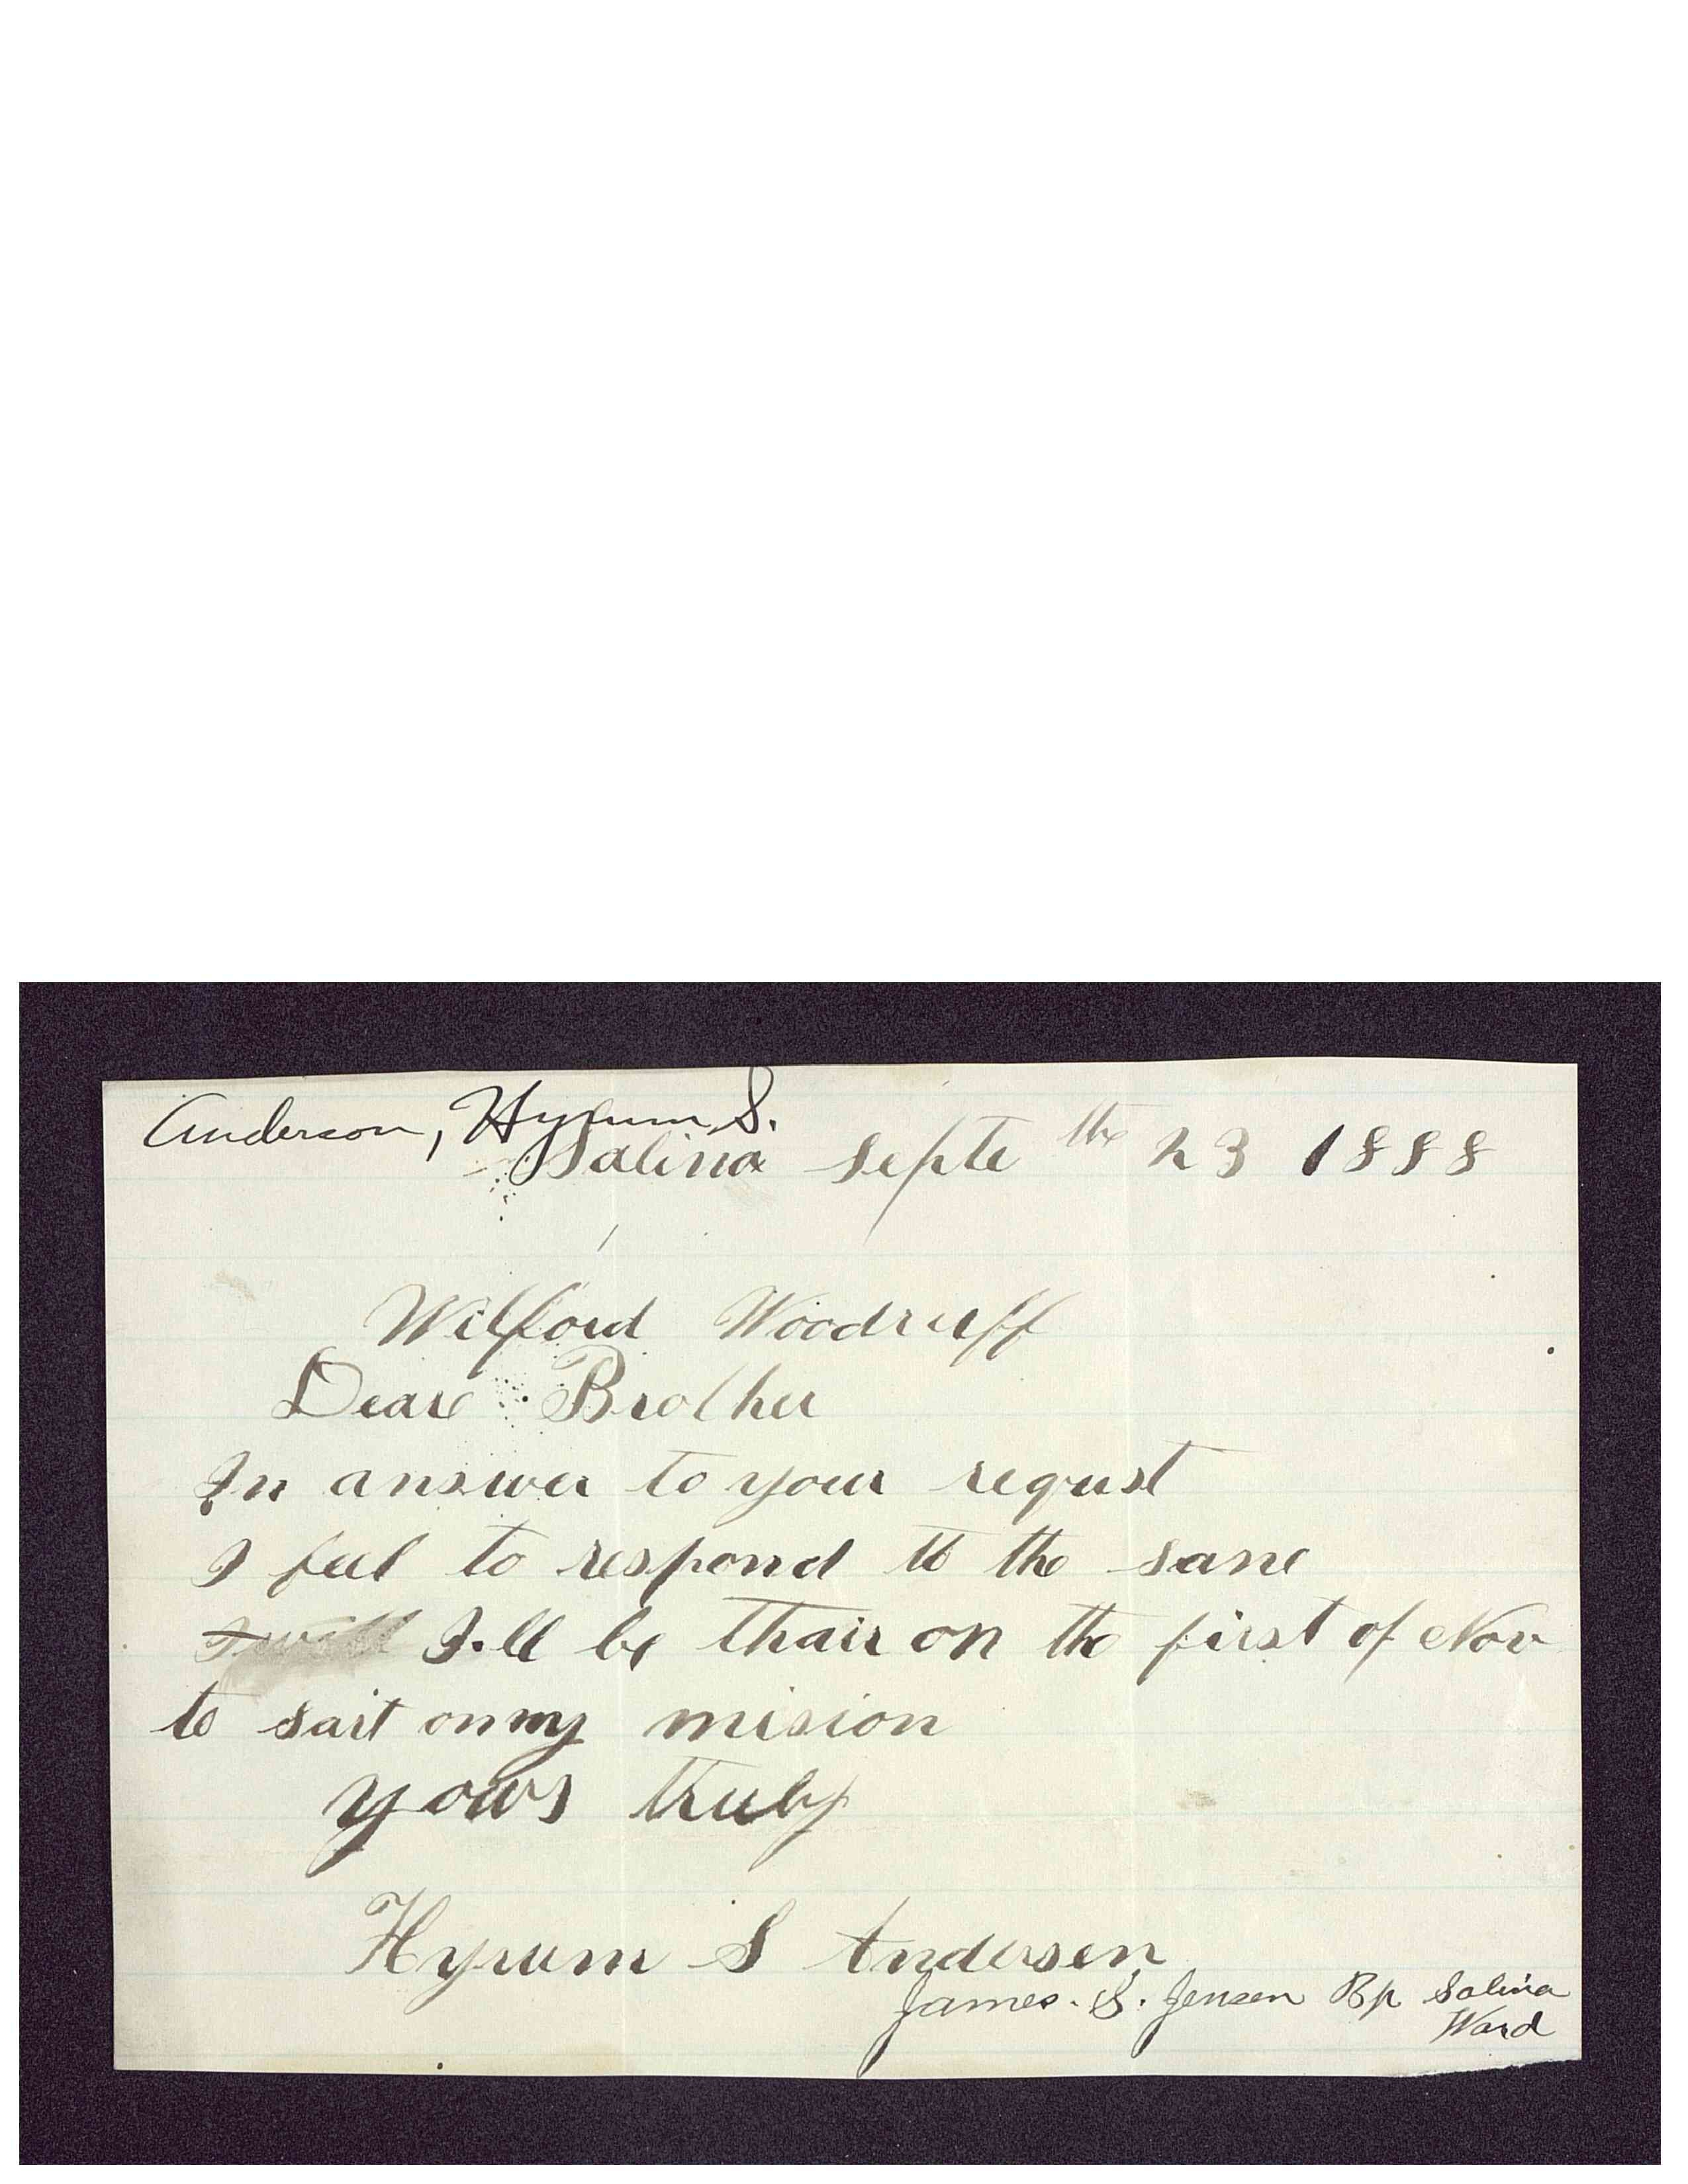 Anderson, Hyrum S.
Salina Septe the 23 1888
Wilford Woodruff
Dear Brother
In answer to your requst
I feel to respond to the same
I will I.ll be thair on the first of Nov
to sart on my mision
yours truly
Hyrum S Andersen
James. S. Jensen Bp Salina
Ward